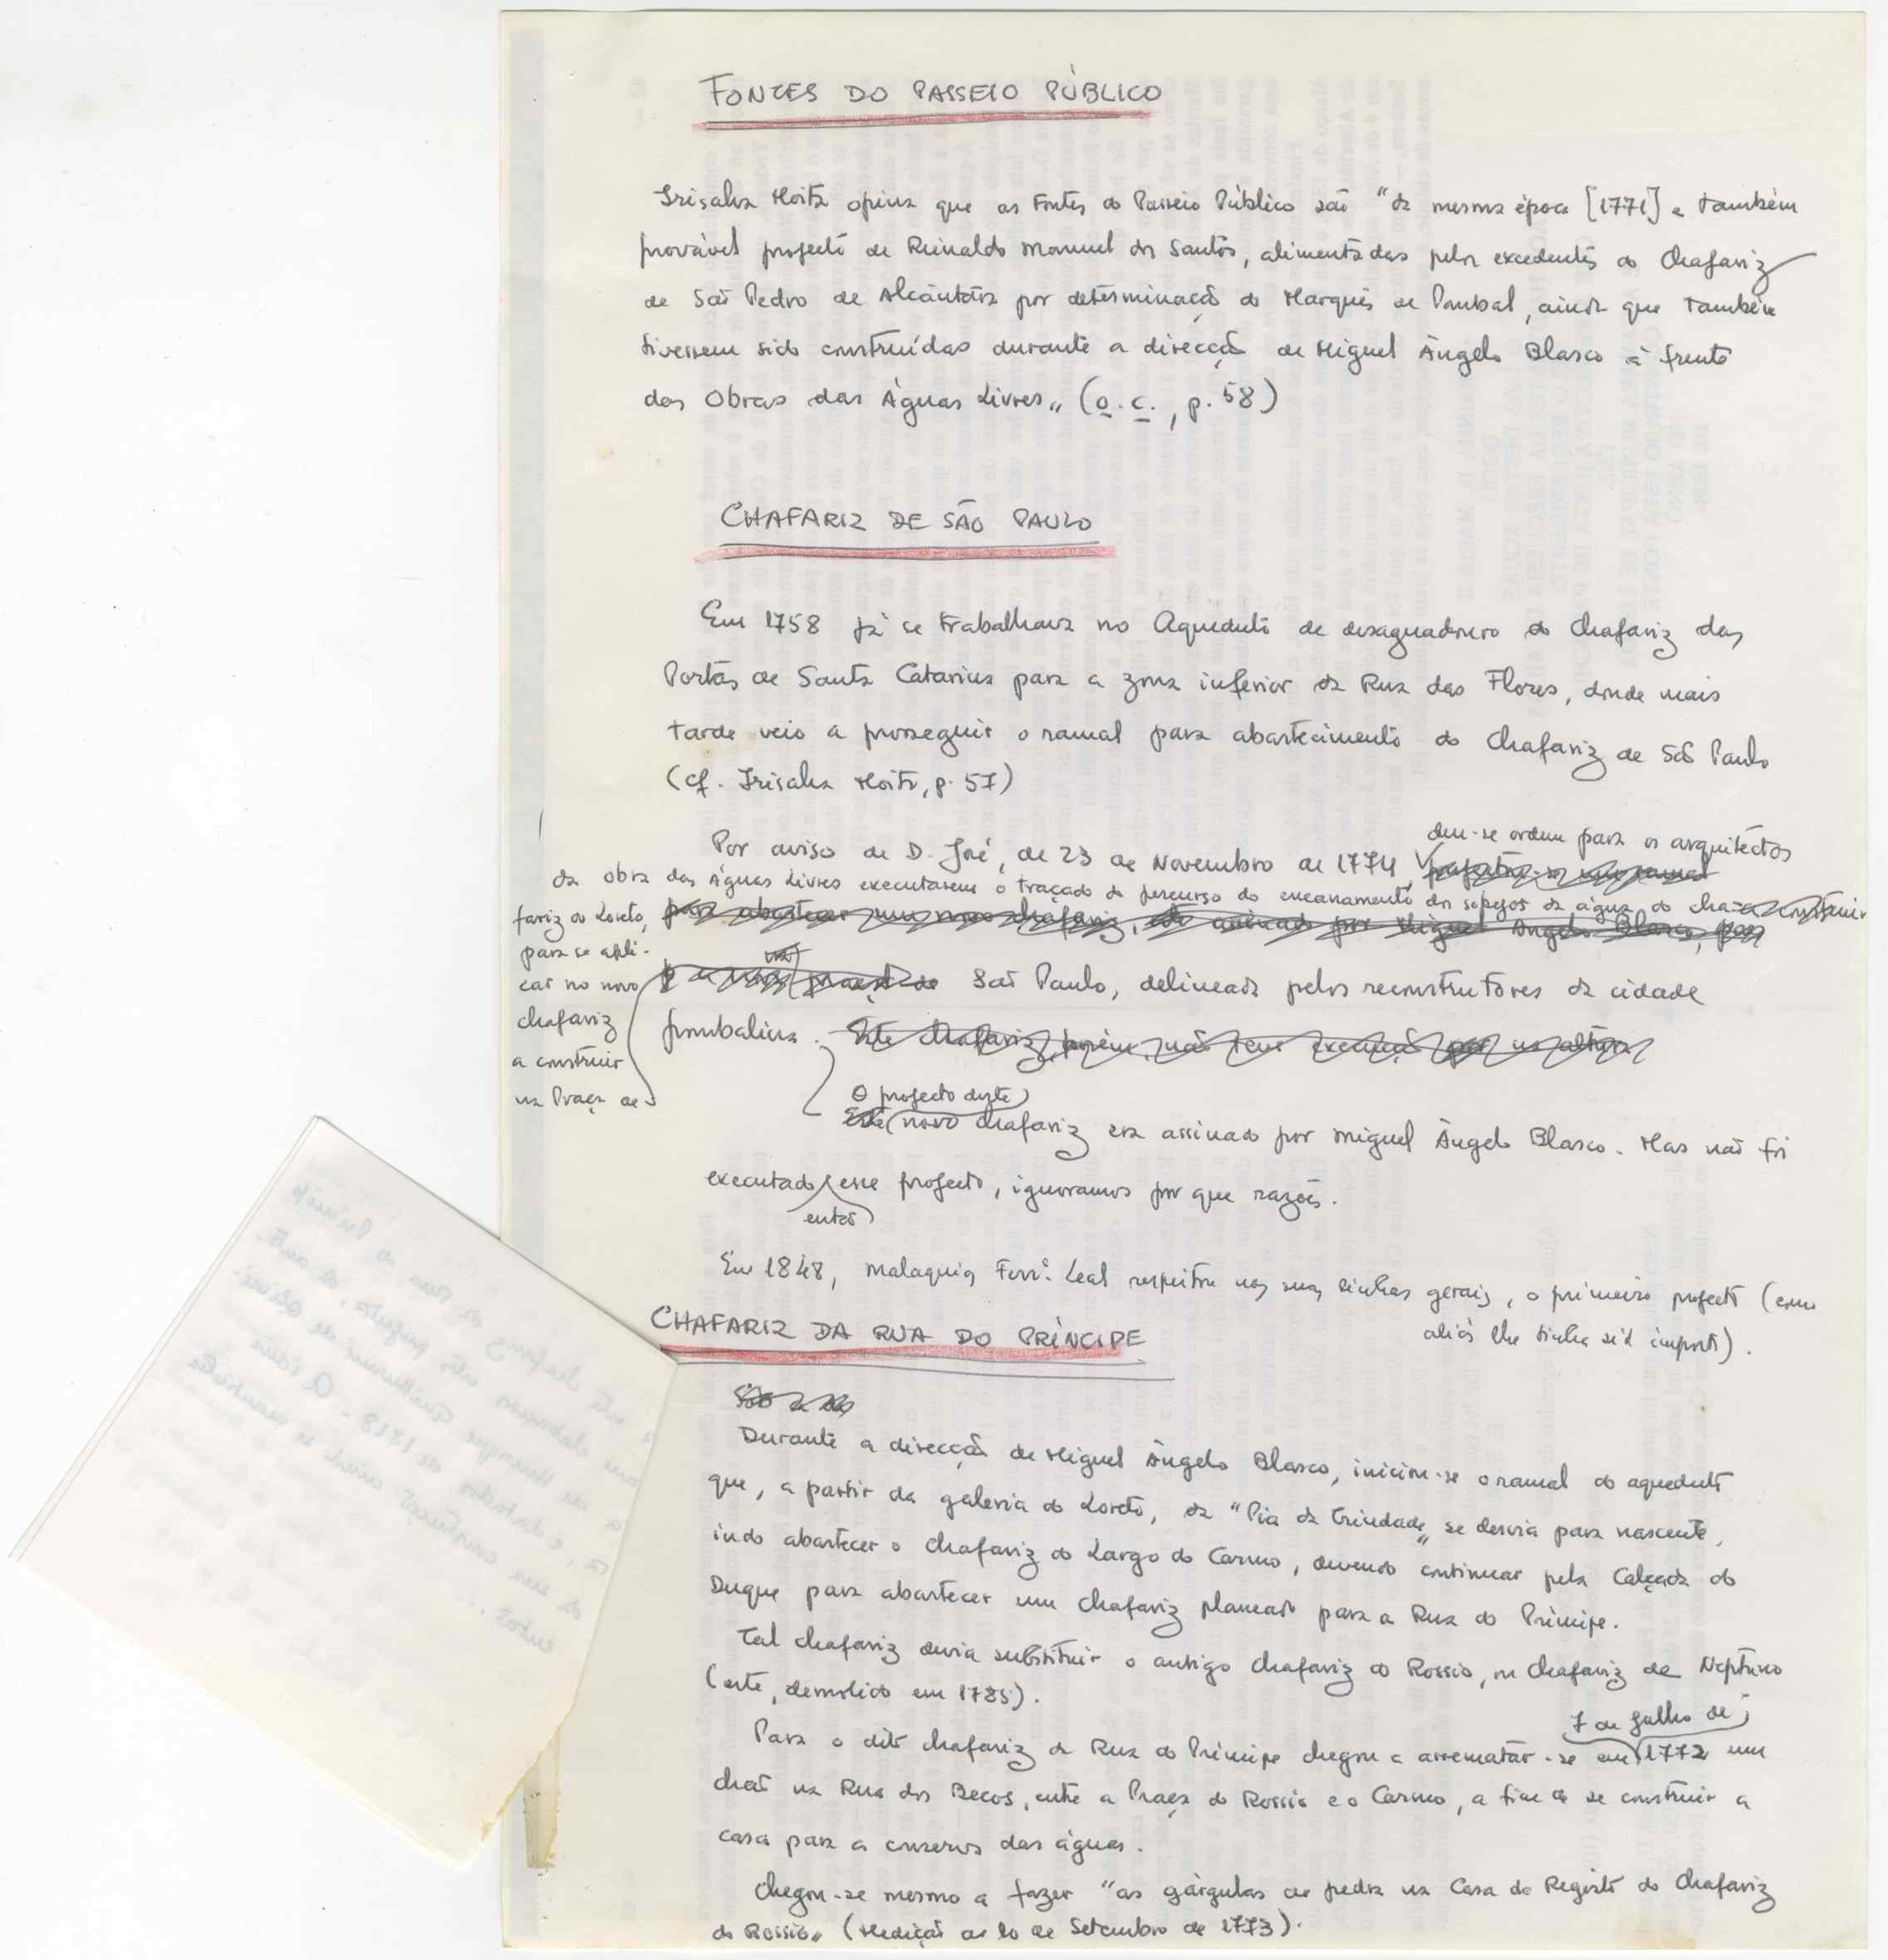 FONTES DO PASSEIO PÚBLICO
Irisalva Moita opina que as Fontes do Passeio Público são "da mesma época [1771] e também
provável projecto de Reinaldo Manuel dos Santos, alimentadas pelos excedentes do Chafariz
de São Pedro de Alcântara por determinação do Marquês de Pombal, ainda que também
tivessem sido construídas durante a direcção de Miguel Ângelo Blasco à frente
das Obras das Águas Livres" (o.c., p. 58)
CHAFARIZ DE SÃO PAULO
Em 1758 já se trabalhava no Aqueduto de desaguadouro do Chafariz das
Portas de Santa Catarina para a zona inferior da Rua das Flores, donde mais
tarde veio a prosseguir o ramal para abastecimento do Chafariz de São Paulo
(cf. Irisalva Moita, p. 57)
Por aviso de D. José, de 23 de Novembro de 1774, deu-se ordem para os arquitectos
da obra das Águas Livres executarem o traçado do percurso do encanamento dos sobejos da água do cha-
fariz do Loreto,
para se apli-
car no novo
chafariz
a construir
na Praça de
São Paulo, delineada pelos reconstrutores da cidade
pombalina.
O projecto deste
novo chafariz era assinado por Miguel Ângelo Blasco. Mas não foi
executado então esse projecto, ignoramos por que razões.
Em 1848, Malaquias Ferrª. Leal respeitou nas suas linhas gerais, o primeiro projecto (como
aliás lhe tinha sido imposto).
CHAFARIZ DA RUA DO PRÍNCIPE
Durante a direcção de Miguel Ângelo Blasco, iniciou-se o ramal do aqueduto
que, a partir da galeria do Loreto, da "Pia da Trindade" se desvia para nascente,
indo abastecer o chafariz do Largo do Carmo, devendo continuar pela Calçada do
Duque para abastecer um chafariz planeado para a Rua do Príncipe.
Tal chafariz devia substituir o antigo chafariz do Rossio, ou Chafariz de Neptuno
(este, demolido em 1785).
Para o dito chafariz da Rua do Príncipe chegou a arrematar-se em 7 de Julho de 1772 um
chão na Rua dos Becos, entre a Praça do Rossio e o Carmo, a fim de se construir a
casa para a conserva das águas.
Chegou-se mesmo a fazer "as gárgulas de pedra na Casa do Registo do Chafariz
do Rossio" (Medição de 10 de Setembro de 1773).